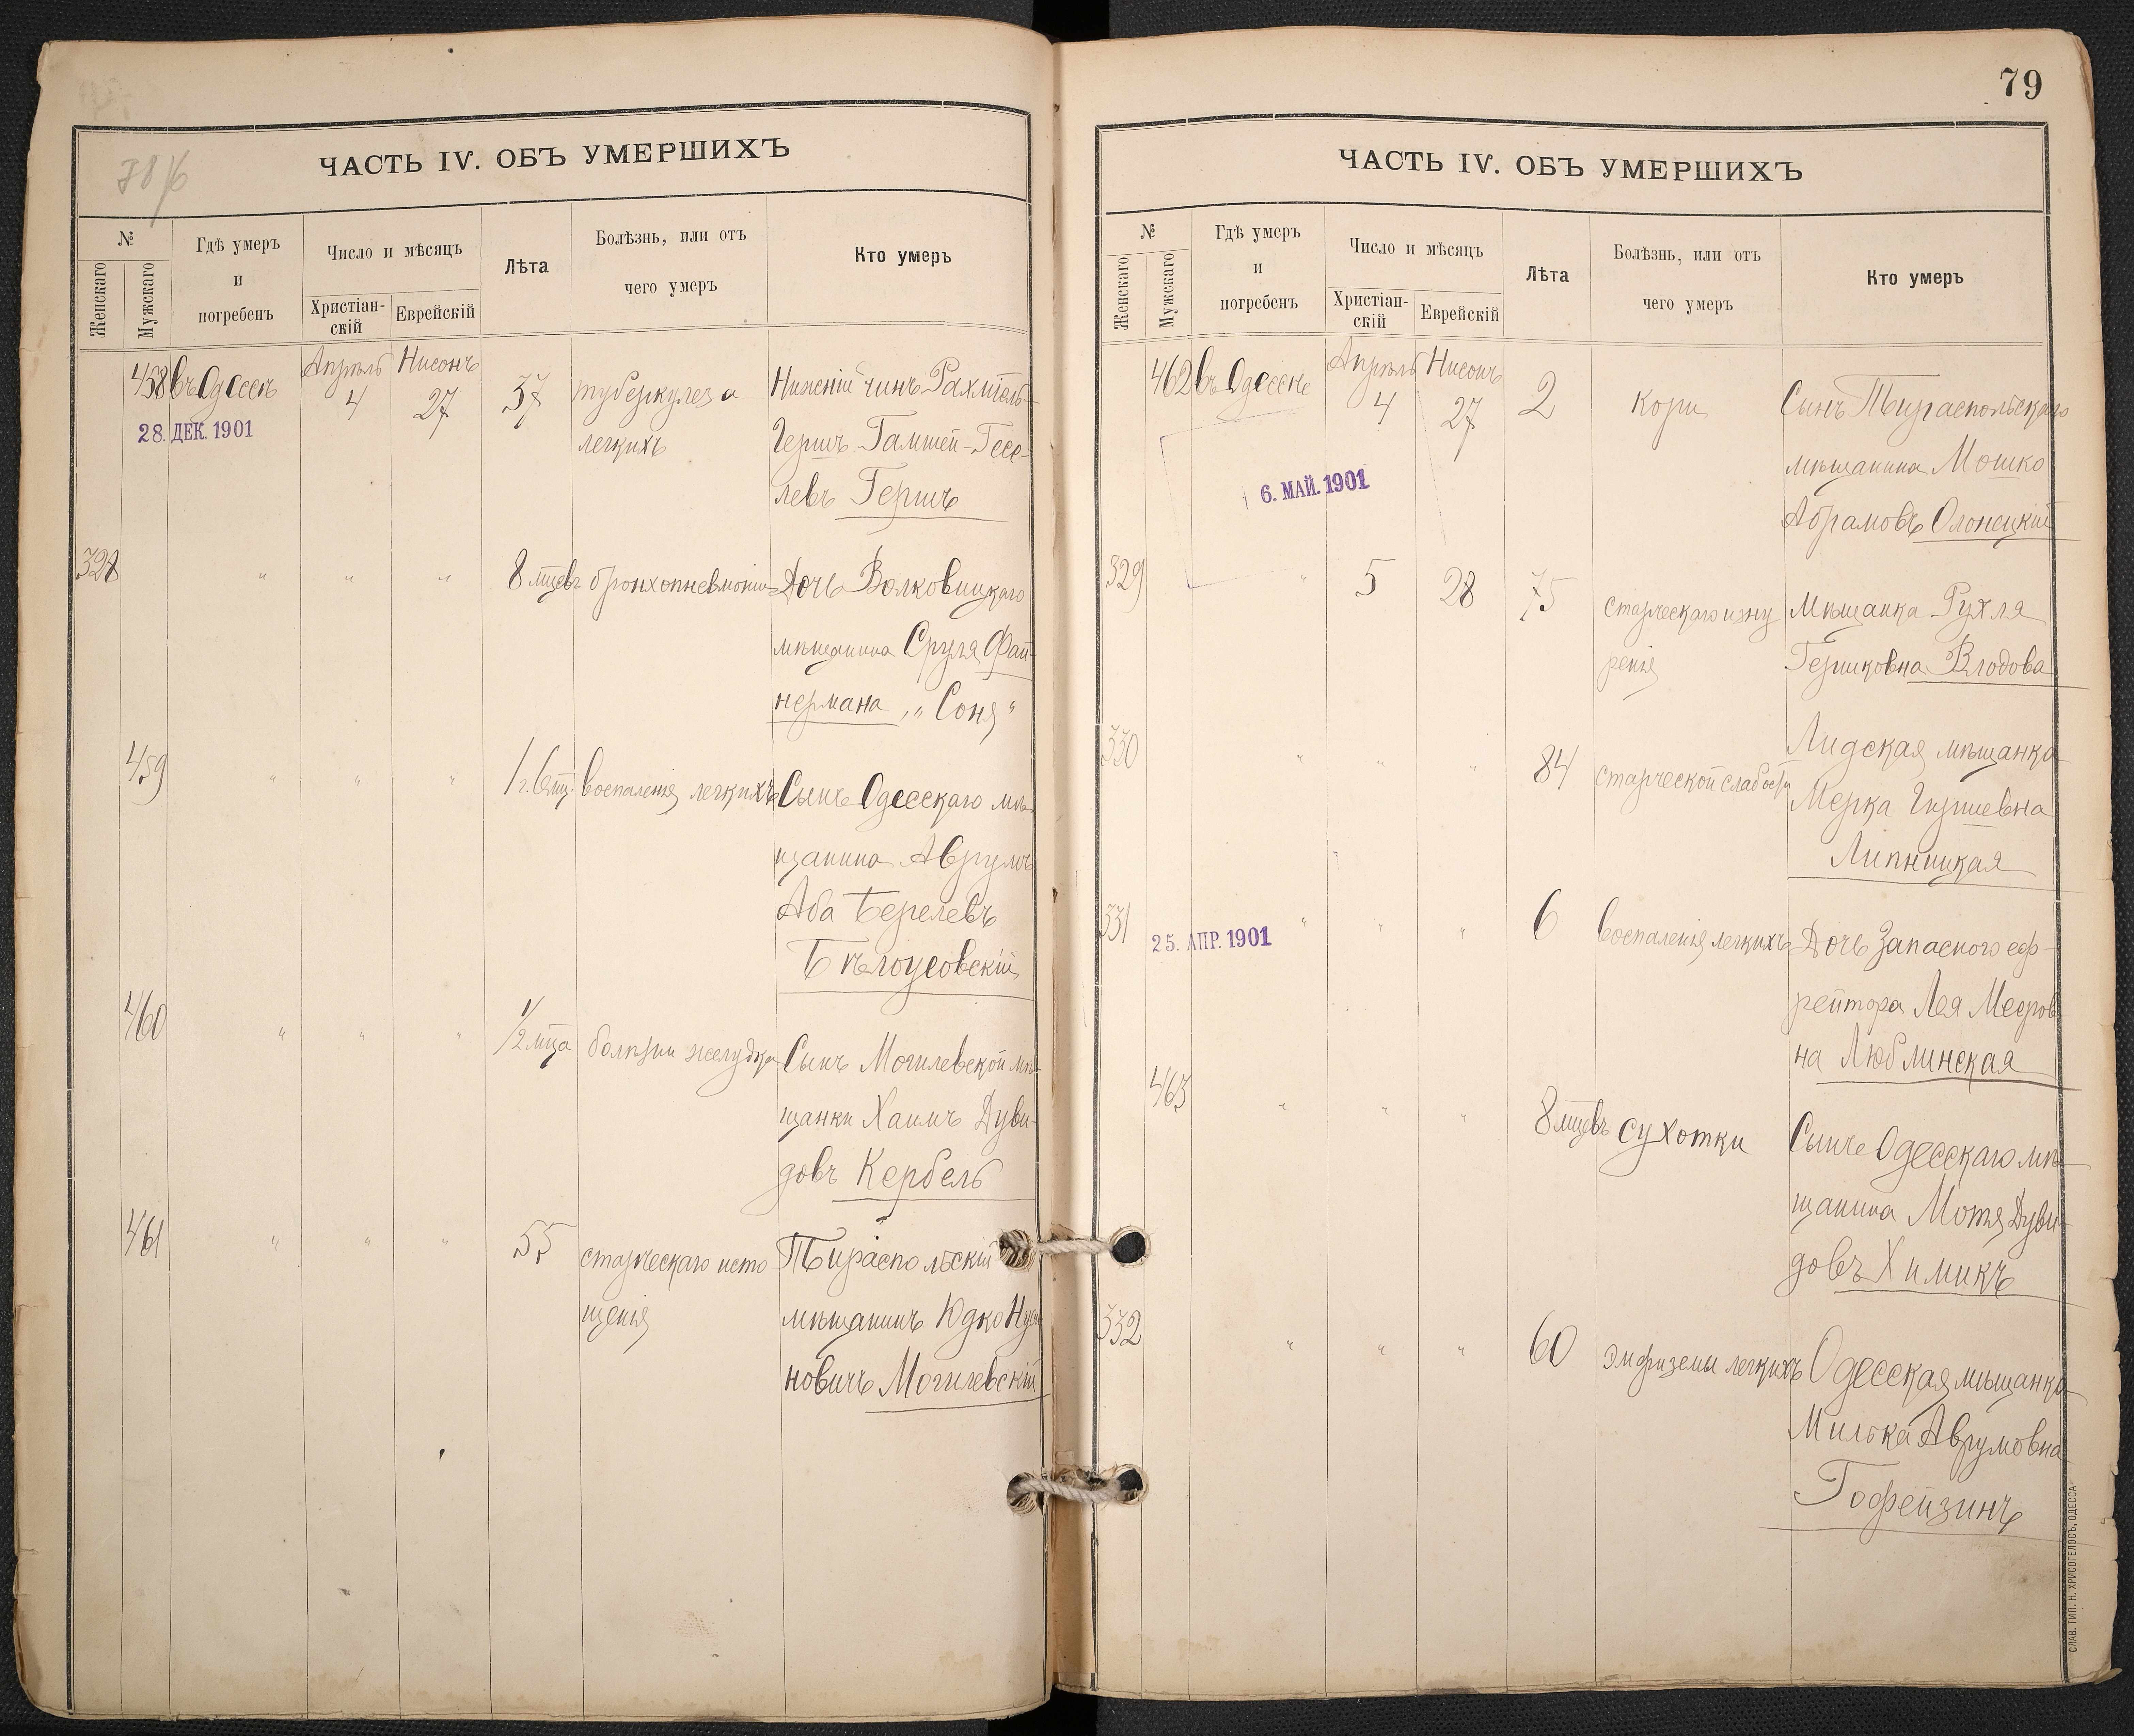 78 /б
ЧАСТЬ IV. ОБЪ УМЕРШИХЪ
№
Женскаго
Мужскаго
Гдѣ умеръ
и
погребенъ
Число и мѣсяцъ
Христіан-
скій
Еврейскій
Лѣта
Болѣзнь, или отъ
чего умеръ
Кто умеръ
458 въ Одессѣ Апрѣль 4 Нисонъ 27 37 туберкулеза
легкихъ
Нижній чинъ Рахміель-
Гершъ Гамшей-Гесе-
левъ Гершъ
28. ДЕК. 1901
328 " " " 8 мцевъ бронхопневмоніи Дочь Волковицкаго
мѣщанина Сруля Фай-
нермана „Соня"
459 " " " 1 г. 6 мц. воспаленія легкихъ Сынъ Одесскаго мѣ-
щанина Аврумъ
Аба Берелевъ
Бѣлоусовскій
460 " " " 1/2 мца болѣзни желудка Сынъ Могилевской мѣ-
щанки Хаимъ Дуви-
довъ Кербель
461 " " " 55 старческаго исто
щенія
Тираспольскій
мѣщанинъ Юдко
новичъ Могилевскій
79
ЧАСТЬ IV. ОБЪ УМЕРШИХЪ
№
Женскаго
Мужскаго
Гдѣ умеръ
и
погребенъ
Число и мѣсяцъ
Христіан-
скій
Еврейскій
Лѣта
Болѣзнь, или отъ
чего умеръ
Кто умеръ
462 въ Одессѣ Апрѣль 4 Нисонъ 27 2 Кори Сынъ Тираспольскаго
мѣщанина Мошко
Абрамовъ Олонецкій
6. МАЙ. 1901
329 " 5 28 75 старческаго изну
ренія
Мѣщанка Рухля
Гершковна Влодова
330 " " " 84 старческой слабости
Лидская мѣщанка
Мерка Гиршевна
Липницкая
331 " " " 6 воспаленія легкихъ Дочь Запасного еф-
рейтора Лея Мееров
на Люблинская
25. АПР. 1901
463 " " " 8 мцевъ сухотки Сынъ Одесскаго мѣ-
щанина Мотя Дуви-
довъ Химикъ
332 " " " 60 эмфиземы легкихъ Одесская мѣщанка
Милька Аврумовна
Гофейзинъ
СЛАВ. ТИП. Н. ХРИСОГЕЛОСЪ, ОДЕССА